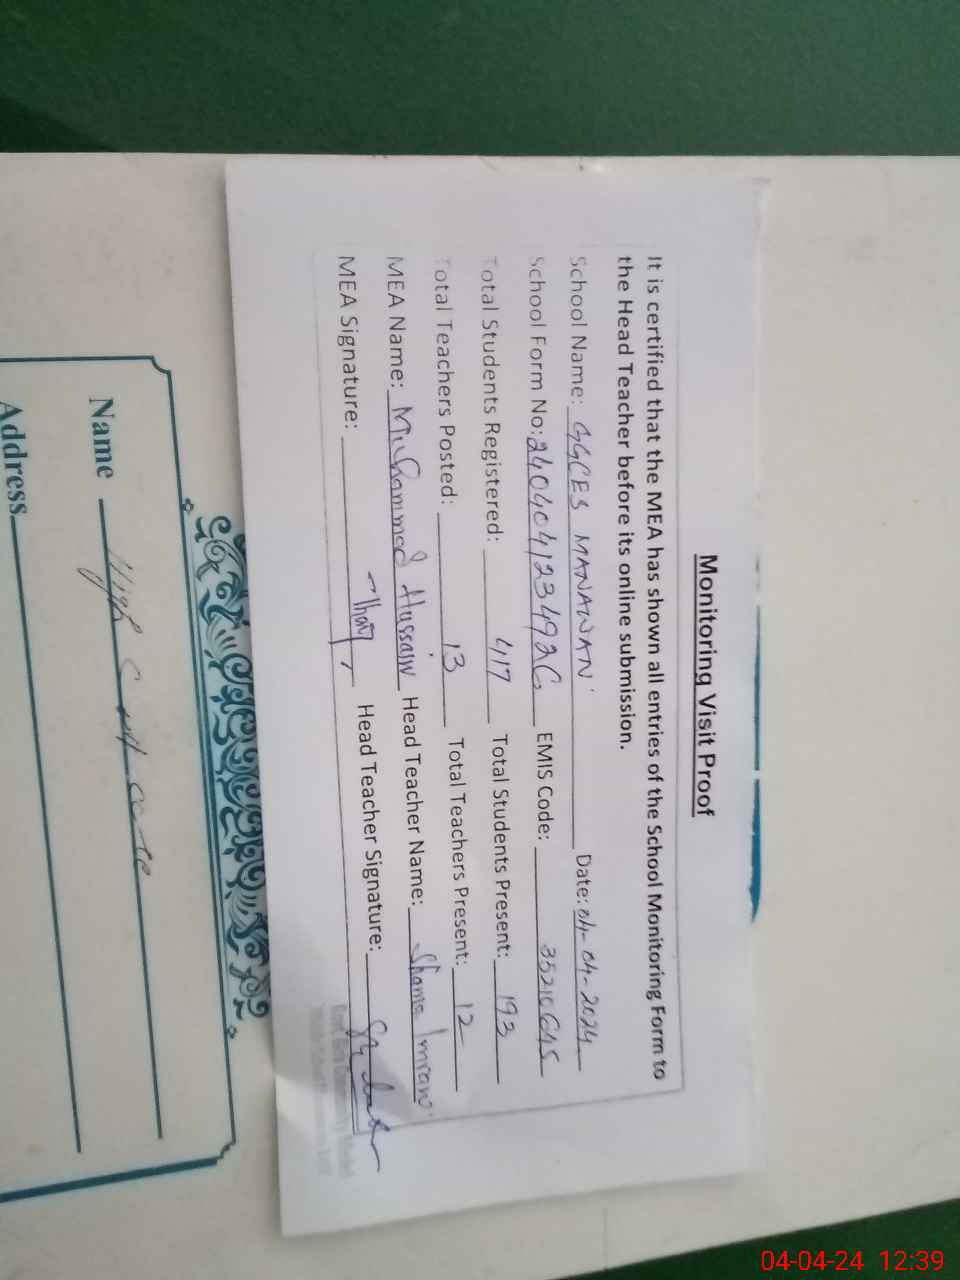 Monitoring Visit Proof
It is certified that the MEA has shown all entries of the School Monitoring Form to
the Head Teacher before its online submission.
School Name: GGCES MANAWAN Date: 04-04-2024
School Form No: 240404123492G EMIS Code: 35210645
Total Students Registered: 417 Total Students Present: 193
Total Teachers Posted: 13 Total Teachers Present: 12
MEA Name: Muhammad Hussain Head Teacher Name: Shama Imran
MEA Signature: Head Teacher Signature:
Name
Address
04-04-24 12:39